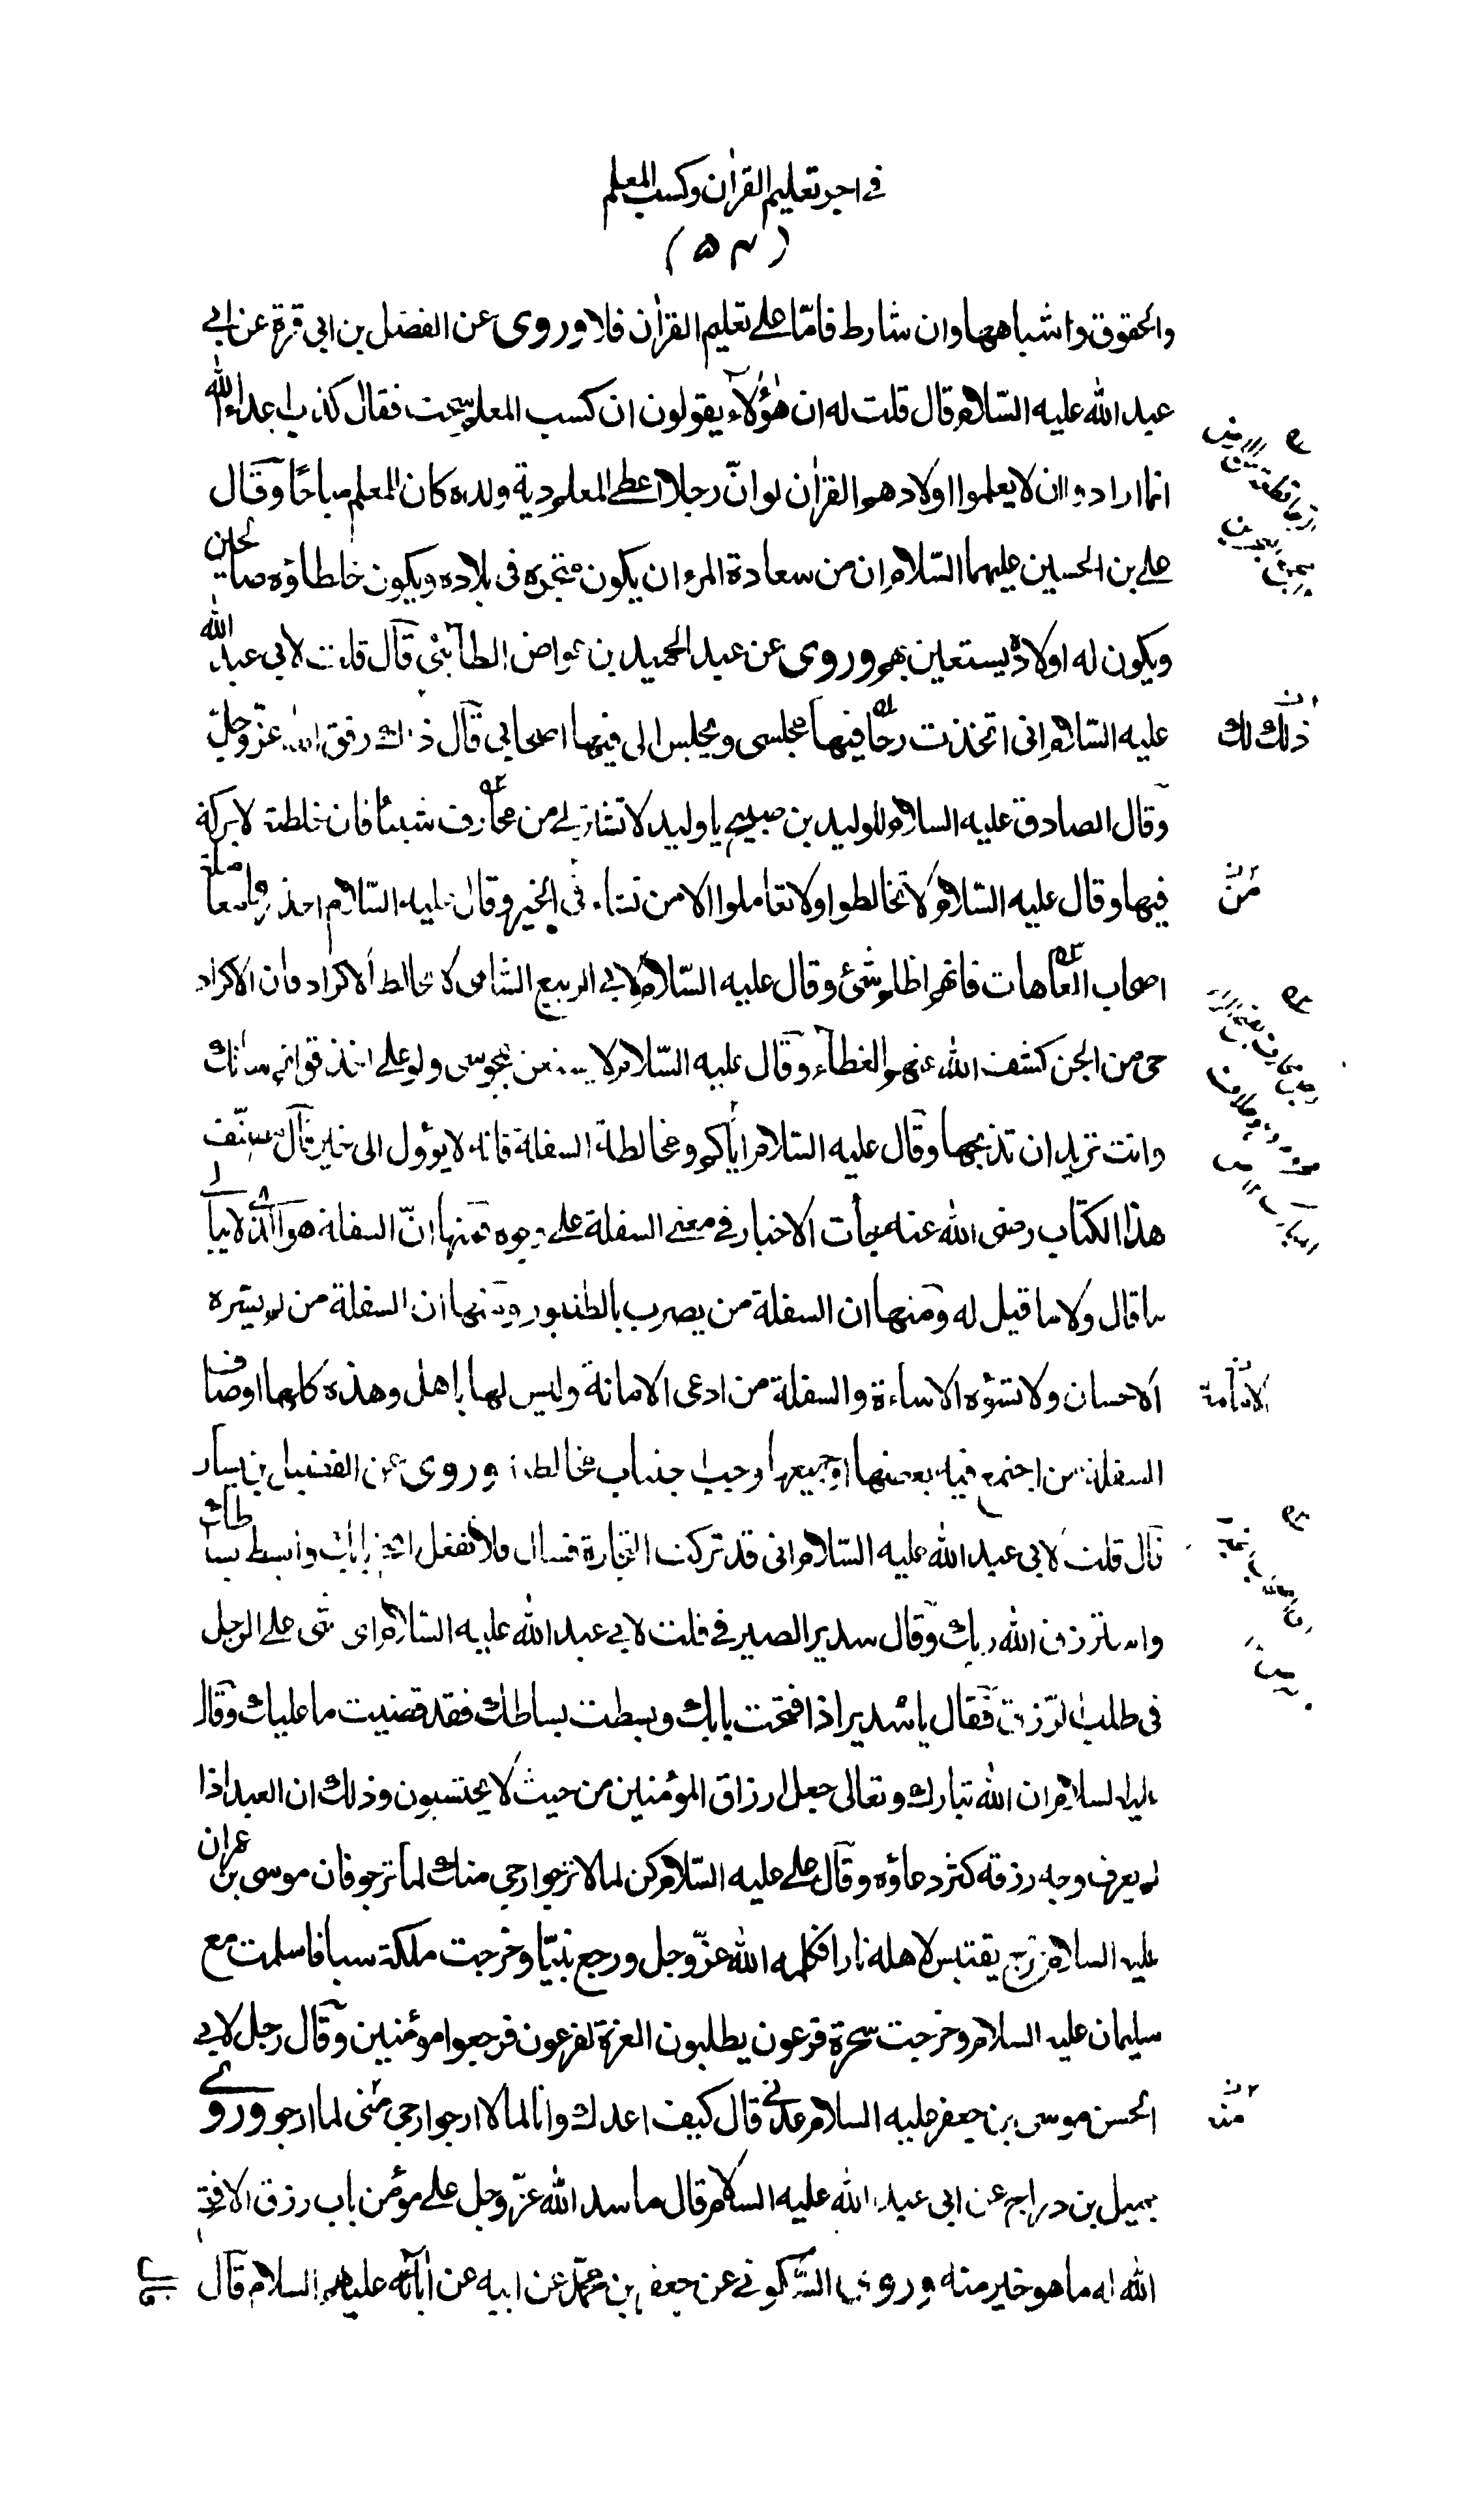 في اجر تعليم القرآن وكسب المعلم
(۵۴)
والحقوق واشباهها وان شارط فامّا على تعليم القرآن فلا وروى عن الفضل بن ابى قرة عن ابي
عبد الله عليه السّلام قال قلت له ان هؤلآء يقولون ان كسب المعلم سحت فقال كذب اعداء الله
انما ارادوا ان لا يعلموا اولادهم القرآن لو انّ رجلا اعطى المعلم دية ولده كان للمعلم مباحًا وقال
على بن الحسين عليهما السّلام ان من سعادة المرء ان يكون متجره فى بلاده ويكون خلطاؤه صالحين
ويكون له اولاد يستعين بهم وروى عن عبد الحميد بن عواض الطآئى قال قلت لابى عبد الله
عليه السّلام انى اتخذت رحًا فيها مجلسى ويجلس الى فيها اصحابى قال ذاك رفق الله عزّ وجلّ
ذلك لك
وقال الصادق عليه السلام للوليد بن صبيح يا وليد لا تشتر لى من محارف شيئا فان خلطته لا بركة
فيها وقال عليه السّلام لا تخالطوا ولا تعاملوا الا من نشاء فى الخير وقال عليه السّلام احذر معاملة
من
اصحاب العاهات فانهم اظلم شئ وقال عليه السّلام لابي الربيع الشامى لا تخالط الاكراد فان الاكراد
حى من الجن كشف الله عنهم الغطآء وقال عليه السّلام لا تستعن بمجوسى ولو على اخذ قوائم شاتك
وانت تريد ان تذبحها وقال عليه السّلام اياكم ومخالطة السفلة فانه لا يؤول الى خير قال مصنّف
هذا الكتاب رضى الله عنه جآت الاخبار في معنى السفلة على وجوه فمنها انّ السفلة هو الّذى لا يبالي
ما قال ولا ما قيل له ومنها ان السفلة من يضرب بالطنبور ومنها ان السفلة من لم يسّره
الاحسان ولا تسؤه الاساءة والسفلة من ادعى الامانة وليس لها باهل وهذه كلها اوصاف
السفلة من اجتمع فيه بعضها او جميعها وجب اجتناب مخالطته وروى عن الفضيل بن يسار
قال قلت لابى عبد الله عليه السّلام انى قد تركت التجارة فقال فلا تفعل افتح بابك وابسط بساطك
واسترزق الله ربك وقال سدير الصيرفي قلت لابي عبد الله عليه السّلام اى شئ على الرجل
فى طلب الرّزق فقال يا سدير اذا فتحت بابك وبسطت بساطك فقد قضيت ما عليك وقال
عليه السلام ان الله تبارك وتعالى جعل ارزاق المؤمنين من حيث لا يحتسبون وذلك ان العبد اذا
لم يعرف وجه رزقه كثر دعاؤه وقال على عليه السّلام كن لما لا ترجو ارجى منك لما ترجو فان موسى بن عمران
عليه السلام خرج يقتبس لاهله نارا فكلمه الله عزّ وجل ورجع نبيّا وخرجت ملكة سبا فاسلمت مع
سليمان عليه السلام وخرجت سحرة فرعون يطلبون العزة لفرعون فرجعوا مؤمنين وقال رجل لابي
الحسن موسى بن جعفر عليه السلام عدنى قال كيف اعدك وانا لما لا ارجو ارجى منى لما ارجو وروى
منه
جميل بن دراج عن ابى عبد الله عليه السلام قال ما سد الله عزّ وجل على مؤمن باب رزق الا فتح
الله له ما هو خير منه وروى السّكونى عن جعفر بن محمّد عن ابيه عن آبآئه عليهم السلام قال